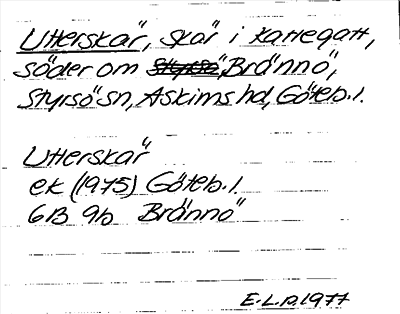 Utterskär, skär i Kattegatt,
söder om Styrsö, Brännö,
Styrsö sn, Askims hd, Göteb. l.
Utterskär
ek (1975) Göteb. l.
6B 9b Brännö
E.L.D. 1977